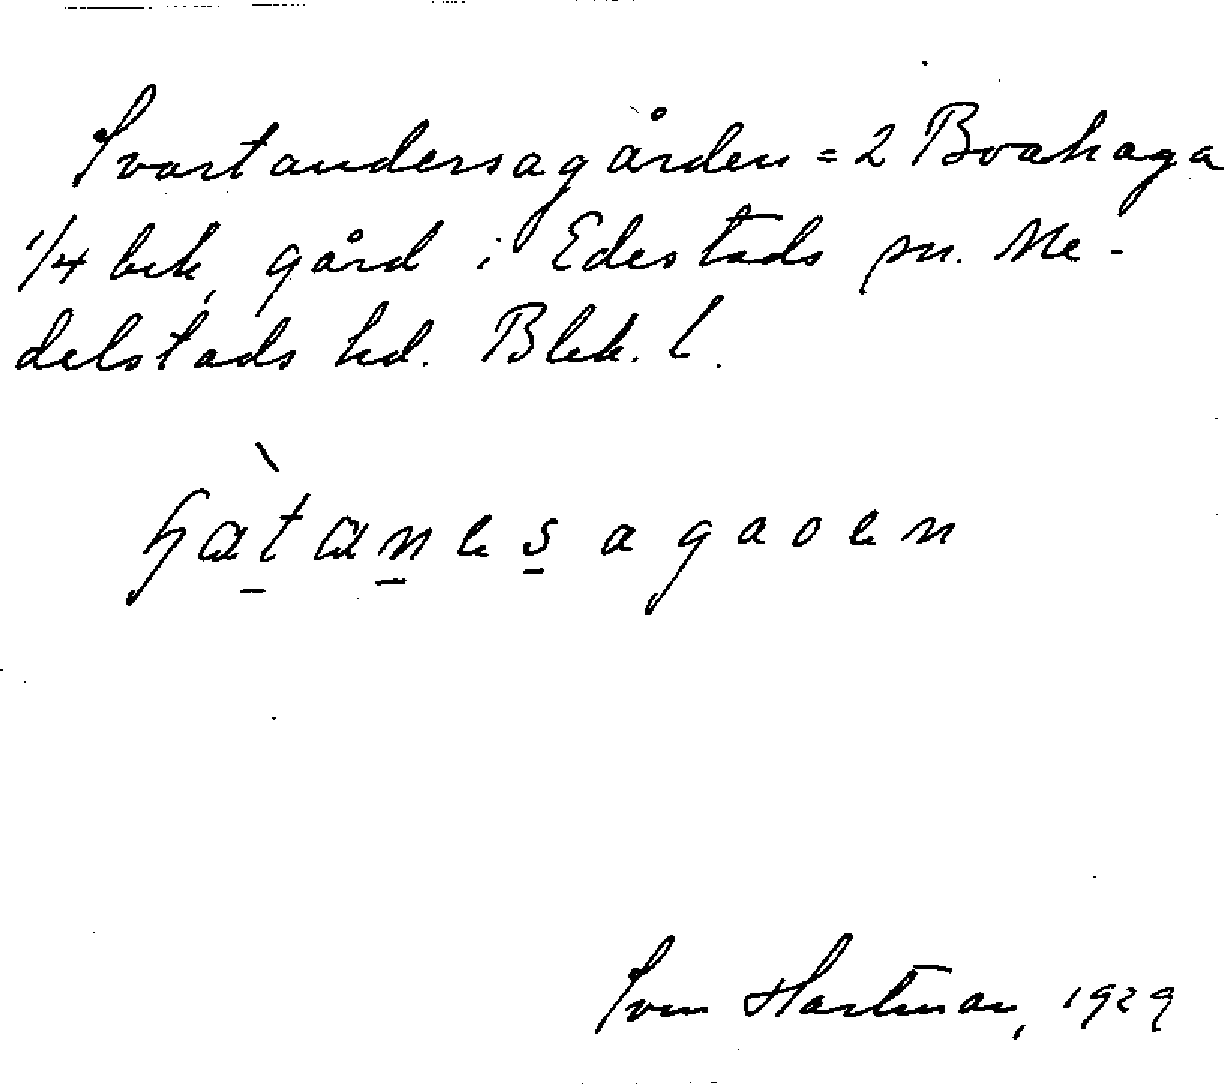 Svartandersagården = 2 Boahaga
1/4 bek, gård i Edestads sn. Me-
delstads hd. Blek. l.
Sven Hartman, 1929